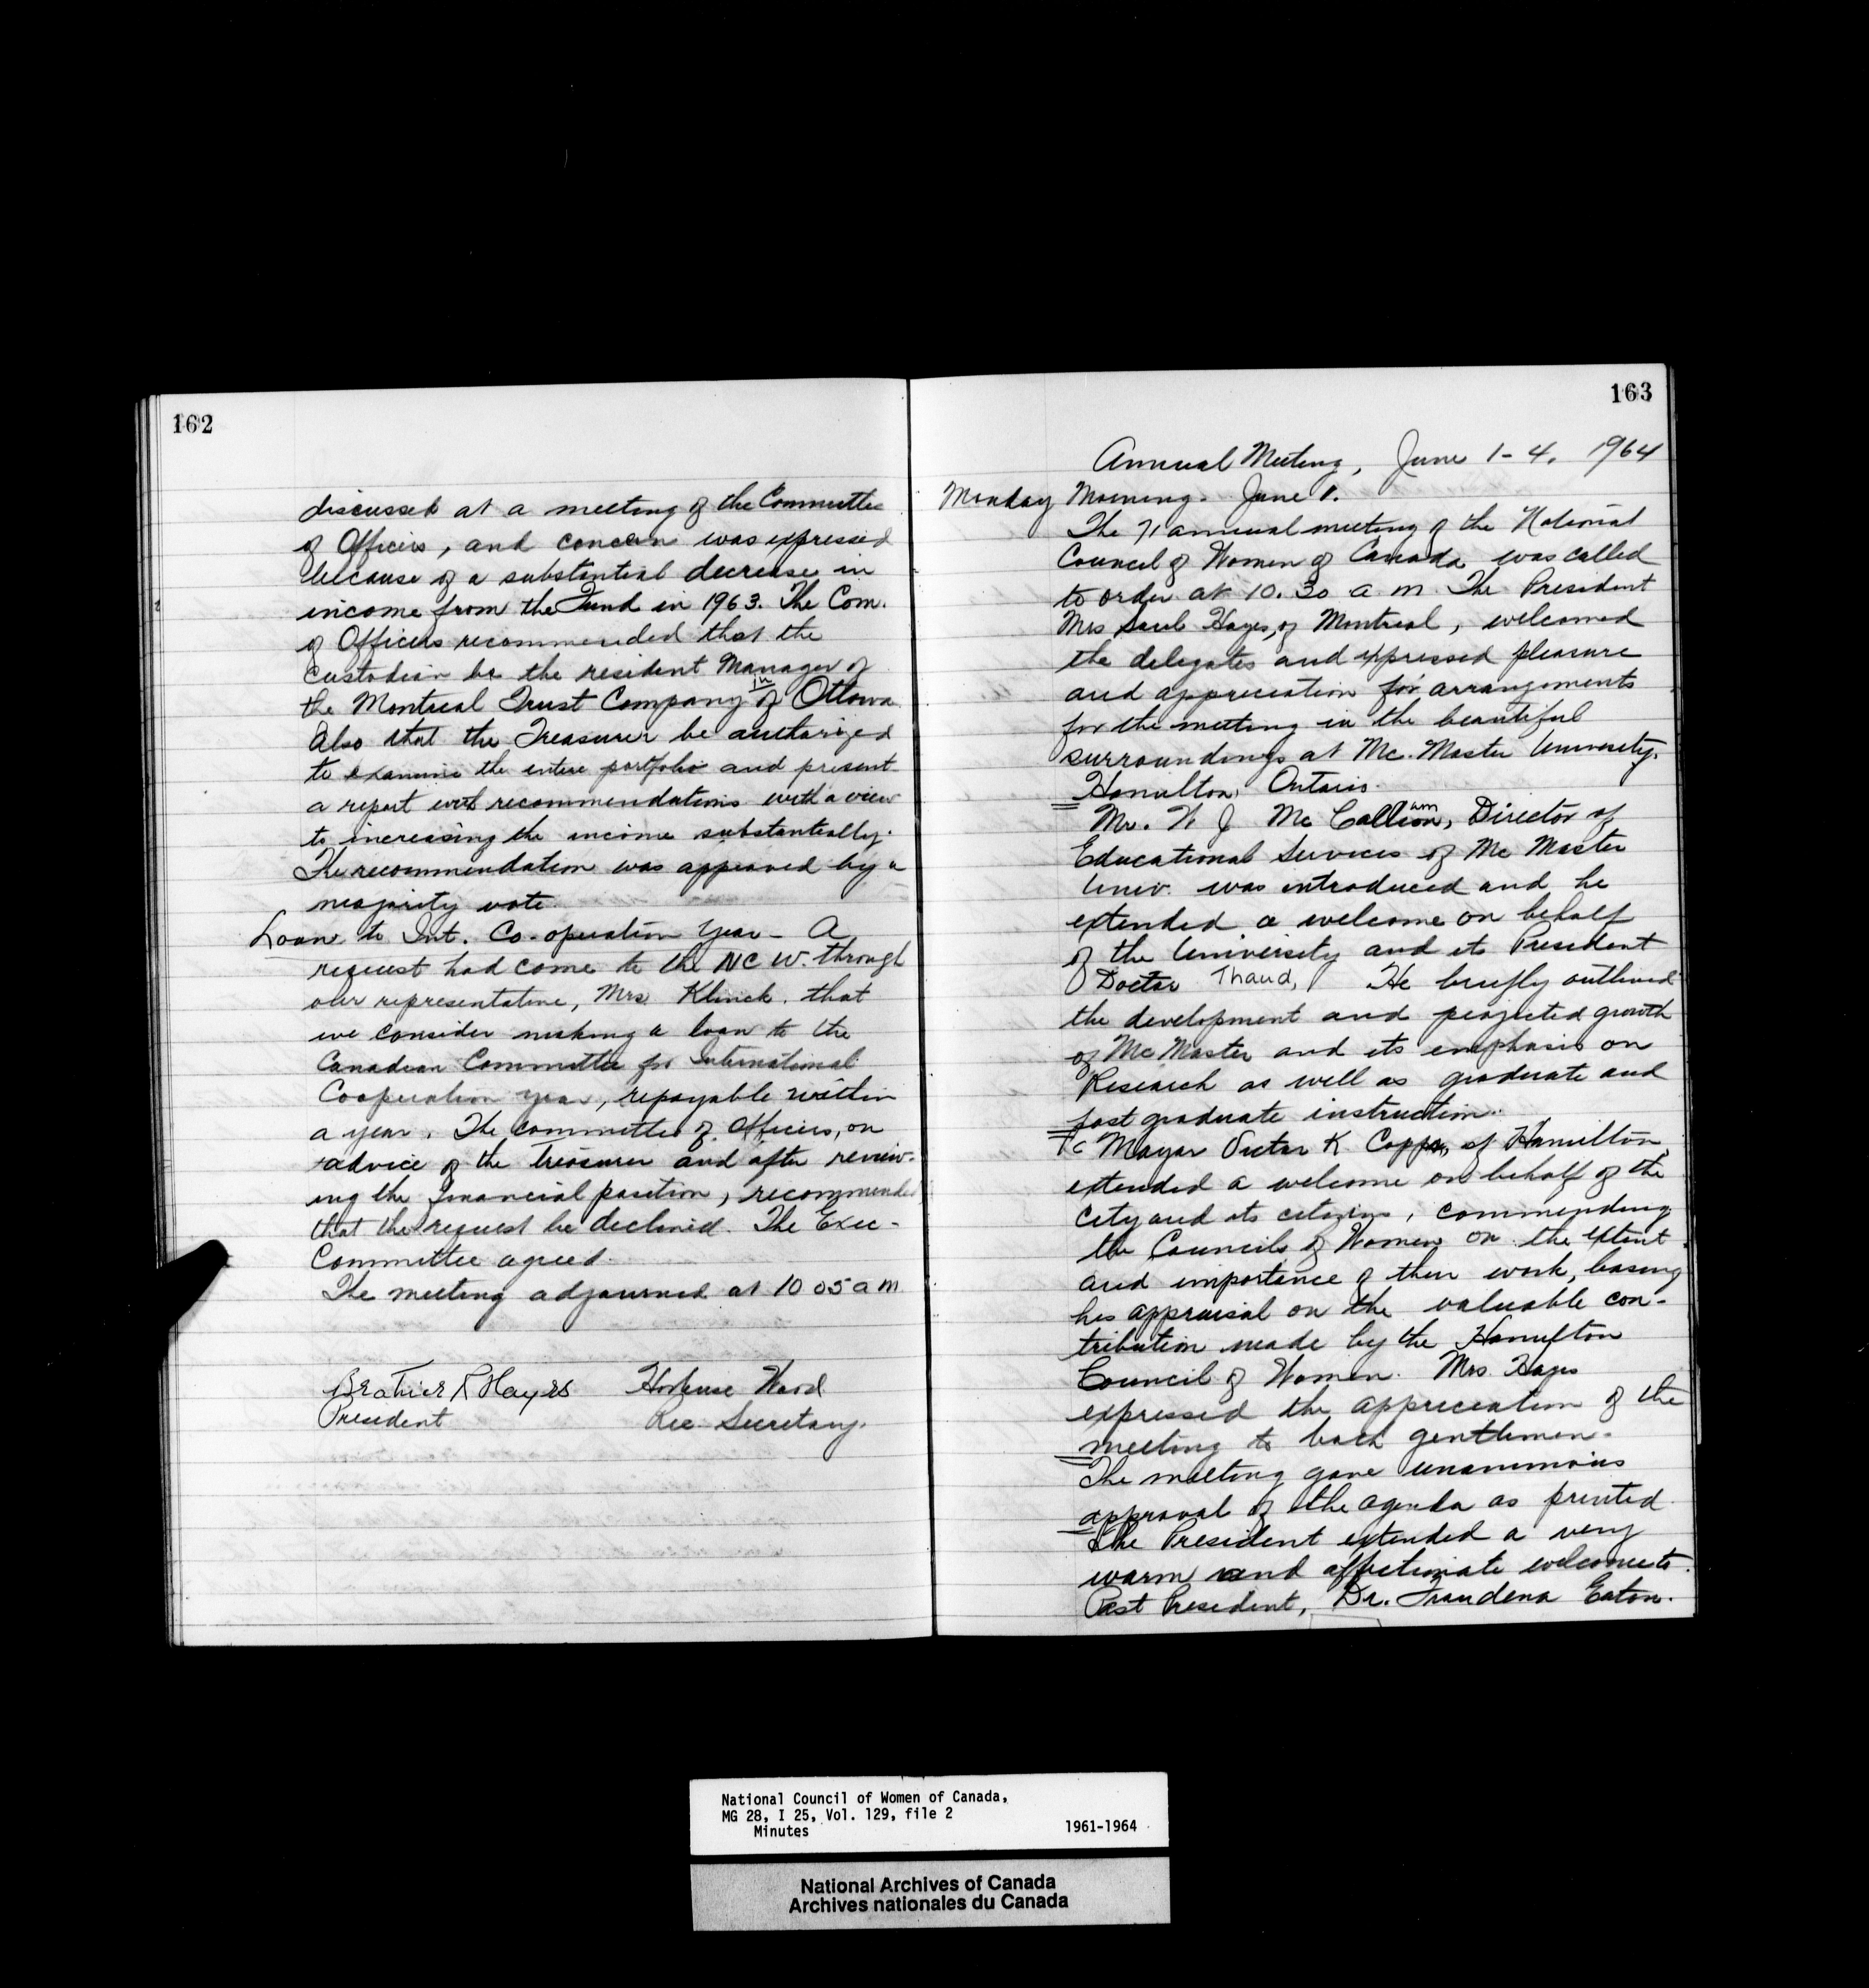 162
discussed at a meeting of the Committee
of Officers, and concern was expressed
because of a substantial decrease in
income from the Fund in 1963. The Com.
of Officers recommended that the
Custodian be the resident Manager of
the Montreal Trust Company in of Ottawa
Also that the Treasurer be authorized
to examine the entire portfolio and present
a report with recommendations with a view
to increasing the income substantially.
The recommendation was approved by a
majority vote
Loan to Int. Co-operation Year - A
request had come to the NCW. through
our representative, Mrs. Klinck. that
we consider making a loan to the
Canadian Committee for International
Cooperation year, repayable within
a year. The committee of Officers, on
advice of the Treasurer and after review-
ing the financial position, recommended
that the request be declined. The Exec-
Committee agreed.
The meeting adjourned at 10 05 a m
Hortense Ward
President Rec. Secretary.
163
Annual Meeting, June 1-4. 1964
Monday Morning. June 1.
The 71 annual meeting of the National
Council of Women of Canada was called
to order at 10.30 a.m. The President
Mrs Saul Hayes, of Montreal, welcomed
the delegates and expressed pleasure
and appreciation for arrangements
for the meeting in the beautiful
surroundings at Mc.Master University.
Hamilton, Ontario.
Mr. W J Mc Callion, am Director of
Educational Services of Mc Master
Univ. was introduced and he
extended a welcome on behalf
of the University and its President
Doctor Thaud, He briefly outlined
the development and projected growth
of McMaster and its emphasis on
Research as well as graduate and
post graduate instruction.
Mayor Victor K. Copps, of Hamilton,
extended a welcome on behalf of the
City and its citizens, commending
the Councils of Women on the extent
and importance of their work, basing
his appraisal on the valuable con-
tribution made by the Hamilton
Council of Women. Mrs. Hayes
expressed the appreciation of the
meeting to both gentlemen.
The meeting gave unanimous
approval of the agenda as printed
The President extended a very
warm and affectionate welcome to
Past President, Dr. Fraudena Eaton.
National Council of Women of Canada,
MG 28, I 25, Vol. 129, file 2
Minutes 1961-1964
National Archives of Canada
Archives nationales du Canada